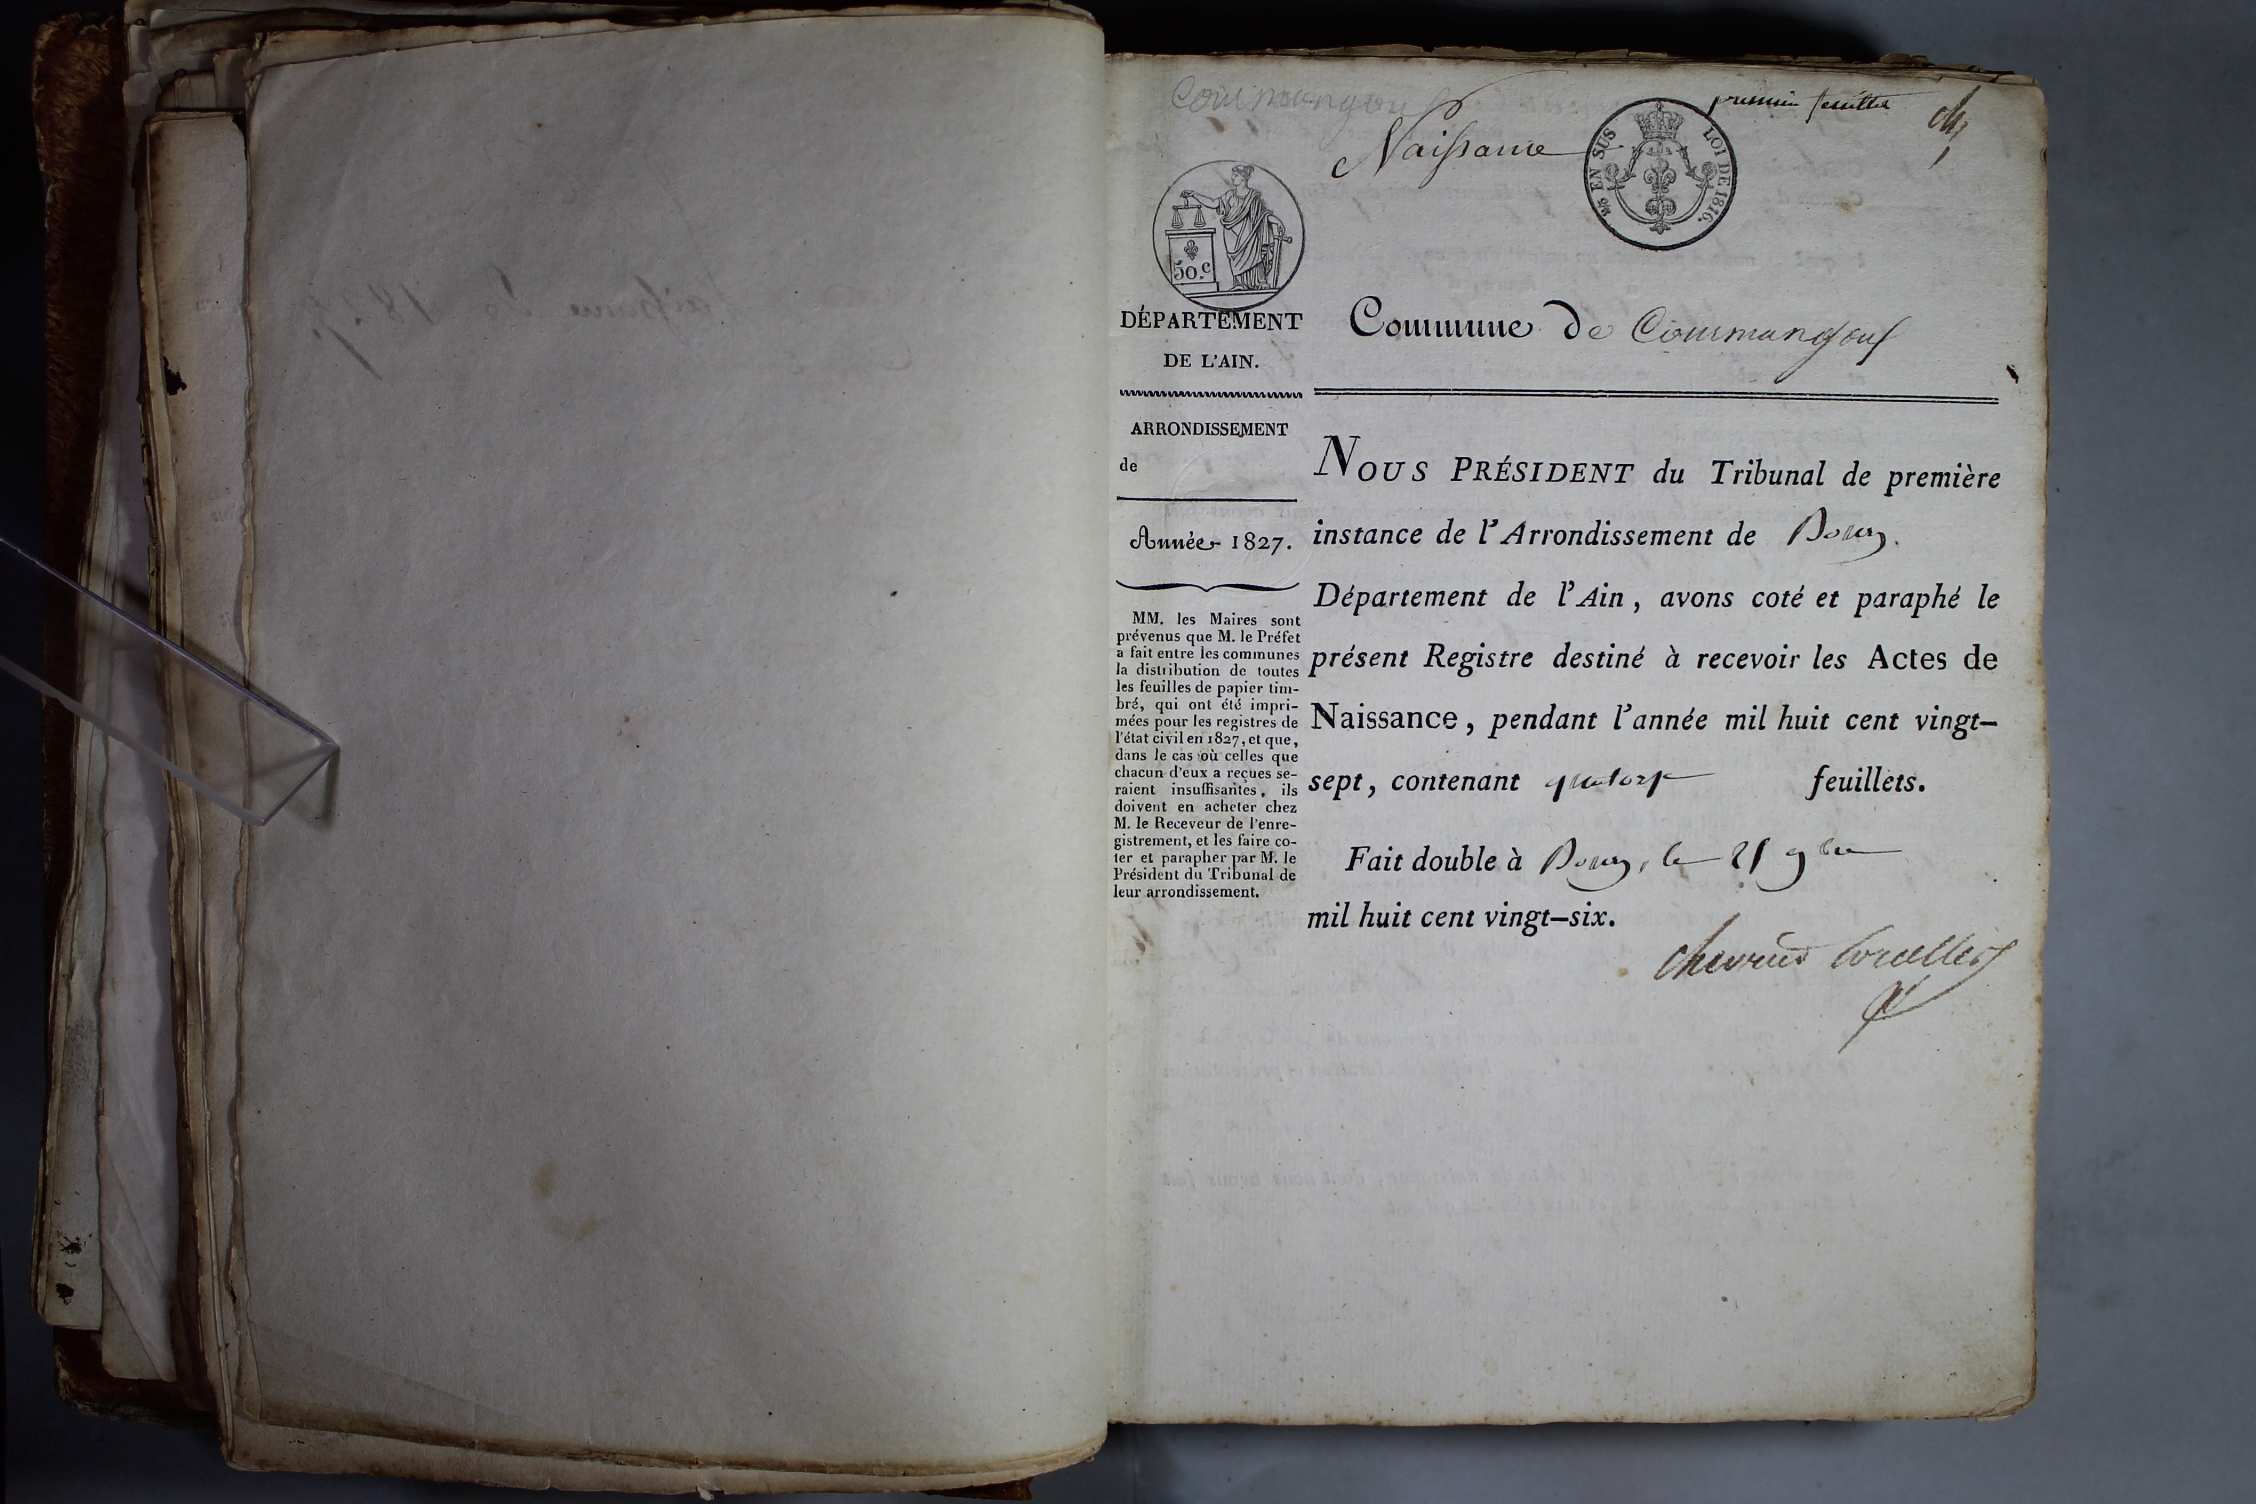 Courmangoux
premier feuillet
Naissance
1/5 EN SUS
LOI DE 1816.
50.c
DÉPARTEMENT
DE L'AIN.
ARRONDISSEMENT
de
Année 1827.
MM. les Maires sont
prévenus que M. le Préfet
a fait entre les communes
la distribution de toutes
les feuilles de papier tim-
bré, qui ont été impri-
mées pour les registres de
l'état civil en 1827, et que,
dans le cas où celles que
chacun d'eux a reçues se-
raient insuffisantes, ils
doivent en acheter chez
M. le Receveur de l'enre-
gistrement, et les faire co-
ter et parapher par M. le
Président du Tribunal de
leur arrondissement.
Commune de Courmangoux
NOUS PRÉSIDENT du Tribunal de première
instance de l'Arrondissement de Bourg.
Département de l'Ain, avons coté et paraphé le
présent Registre destiné à recevoir les Actes de
Naissance, pendant l'année mil huit cent vingt-
sept, contenant quatorze feuillets.
Fait double à Bourg, le 25 9bre
mil huit cent vingt-six.